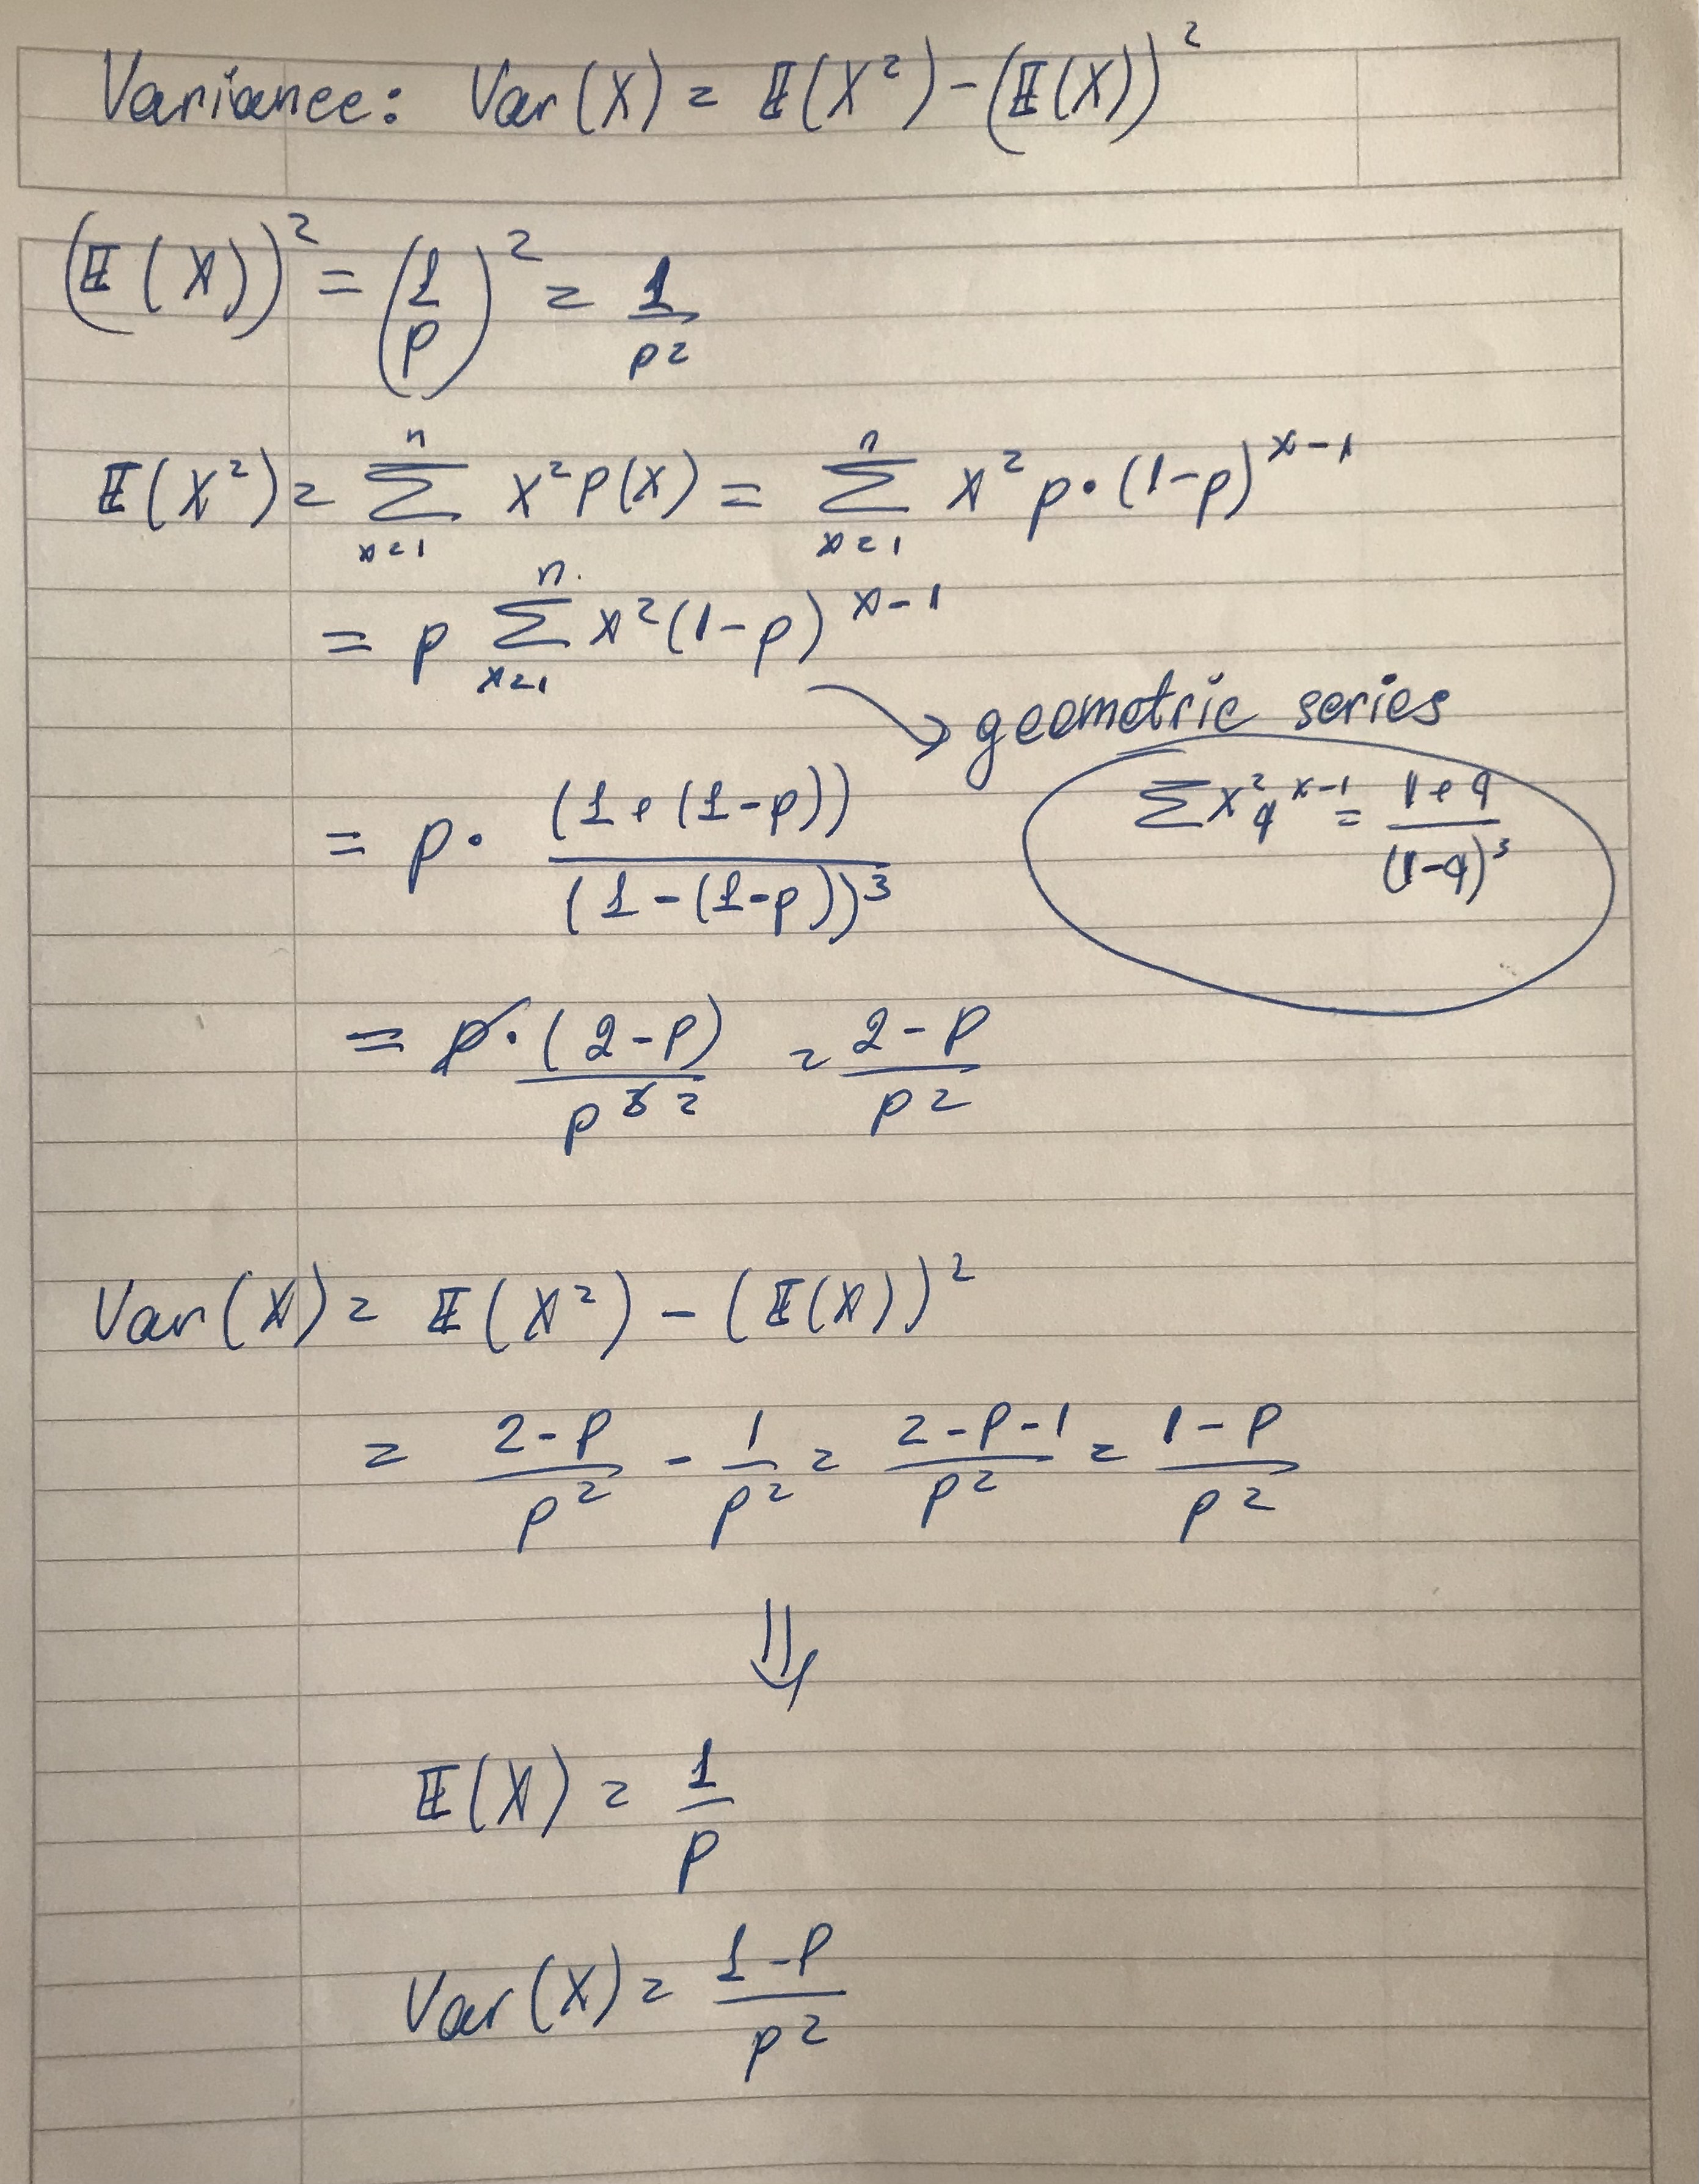 Variance: Var(X) = 𝔼(X²) - (𝔼(X))²
(𝔼(X))² = (1/p)² = 1/p²
𝔼(X²) = ∑_{x=1}^{n} x² p(x) = ∑_{x=1}^{n} x² p·(1-p)^{x-1}
= p ∑_{x=1}^{n} x² (1-p)^{x-1}
→ geometric series
∑ x² q^{x-1} = (1+q)/(1-q)³
= p · (1+(1-p))/(1-(1-p))³
= p · (2-p)/p³ ² = (2-p)/p²
Var(X) = 𝔼(X²) - (𝔼(X))²
= (2-p)/p² - 1/p² = (2-p-1)/p² = (1-p)/p²
⇓
𝔼(X) = 1/p
Var(X) = (1-p)/p²